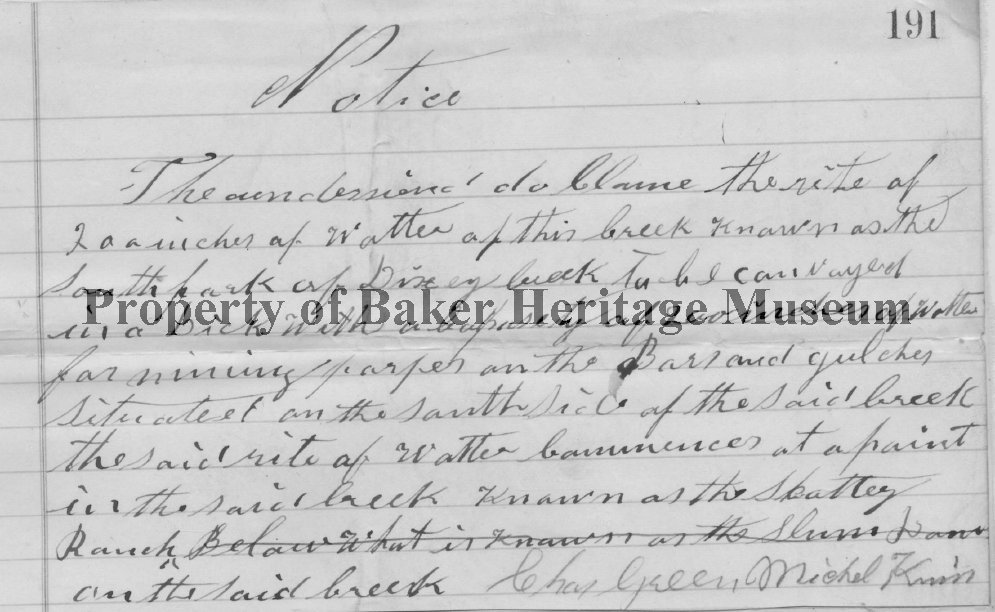 191
Notice
The undersiend do Clame the rite of
200 inches of Watter of this Creek Known as the
South fork of Dixey Creek To be convayed
Property of Baker Heritage Museum
in a Dick With a Capasity of 200 inches of Watter
for mining parpes on the Bars and gulches
situated on the south side of the said Creek
the said rite of Watter Commences at a point
in the said Creek Known as the Skattey
Ranch Below What is Known as the Slum
on the said Creek Chas Green, Michel